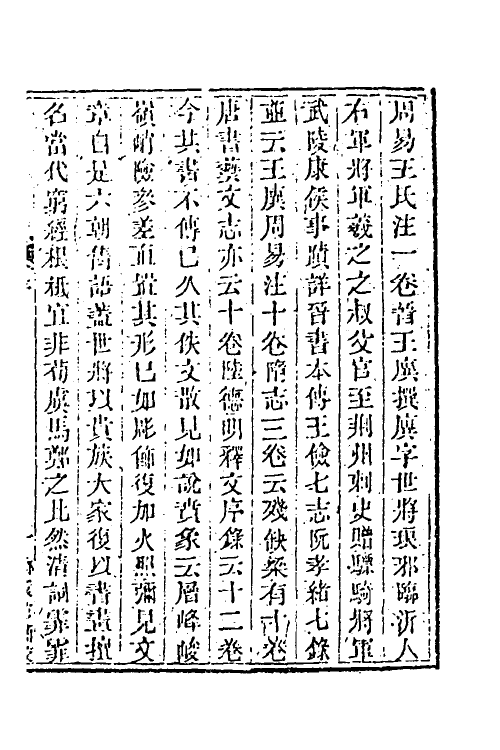 周易王氏注一卷晉王廙撰廙字世將琅邪臨沂人
右軍將軍羲之之叔父官至荆州刺史贈驃騎將軍
武陵康侯事蹟詳晉書本傳王儉七志阮孝緒七錄
並云王廙周易注十卷隋志三卷云殘缺梁有十卷
唐書藝文志亦云十卷陸德明釋文序錄云十二卷
今其書不傳已久其佚文散見如說賁象云層峰峻
嶺峭險參差直置其形已如彫飾復加火照彌見文
章自是六朝雋語蓋世將以貴族大家復以書畫擅
名當代窮經根柢宜非荀虞馬鄭之比然清詞霏霏